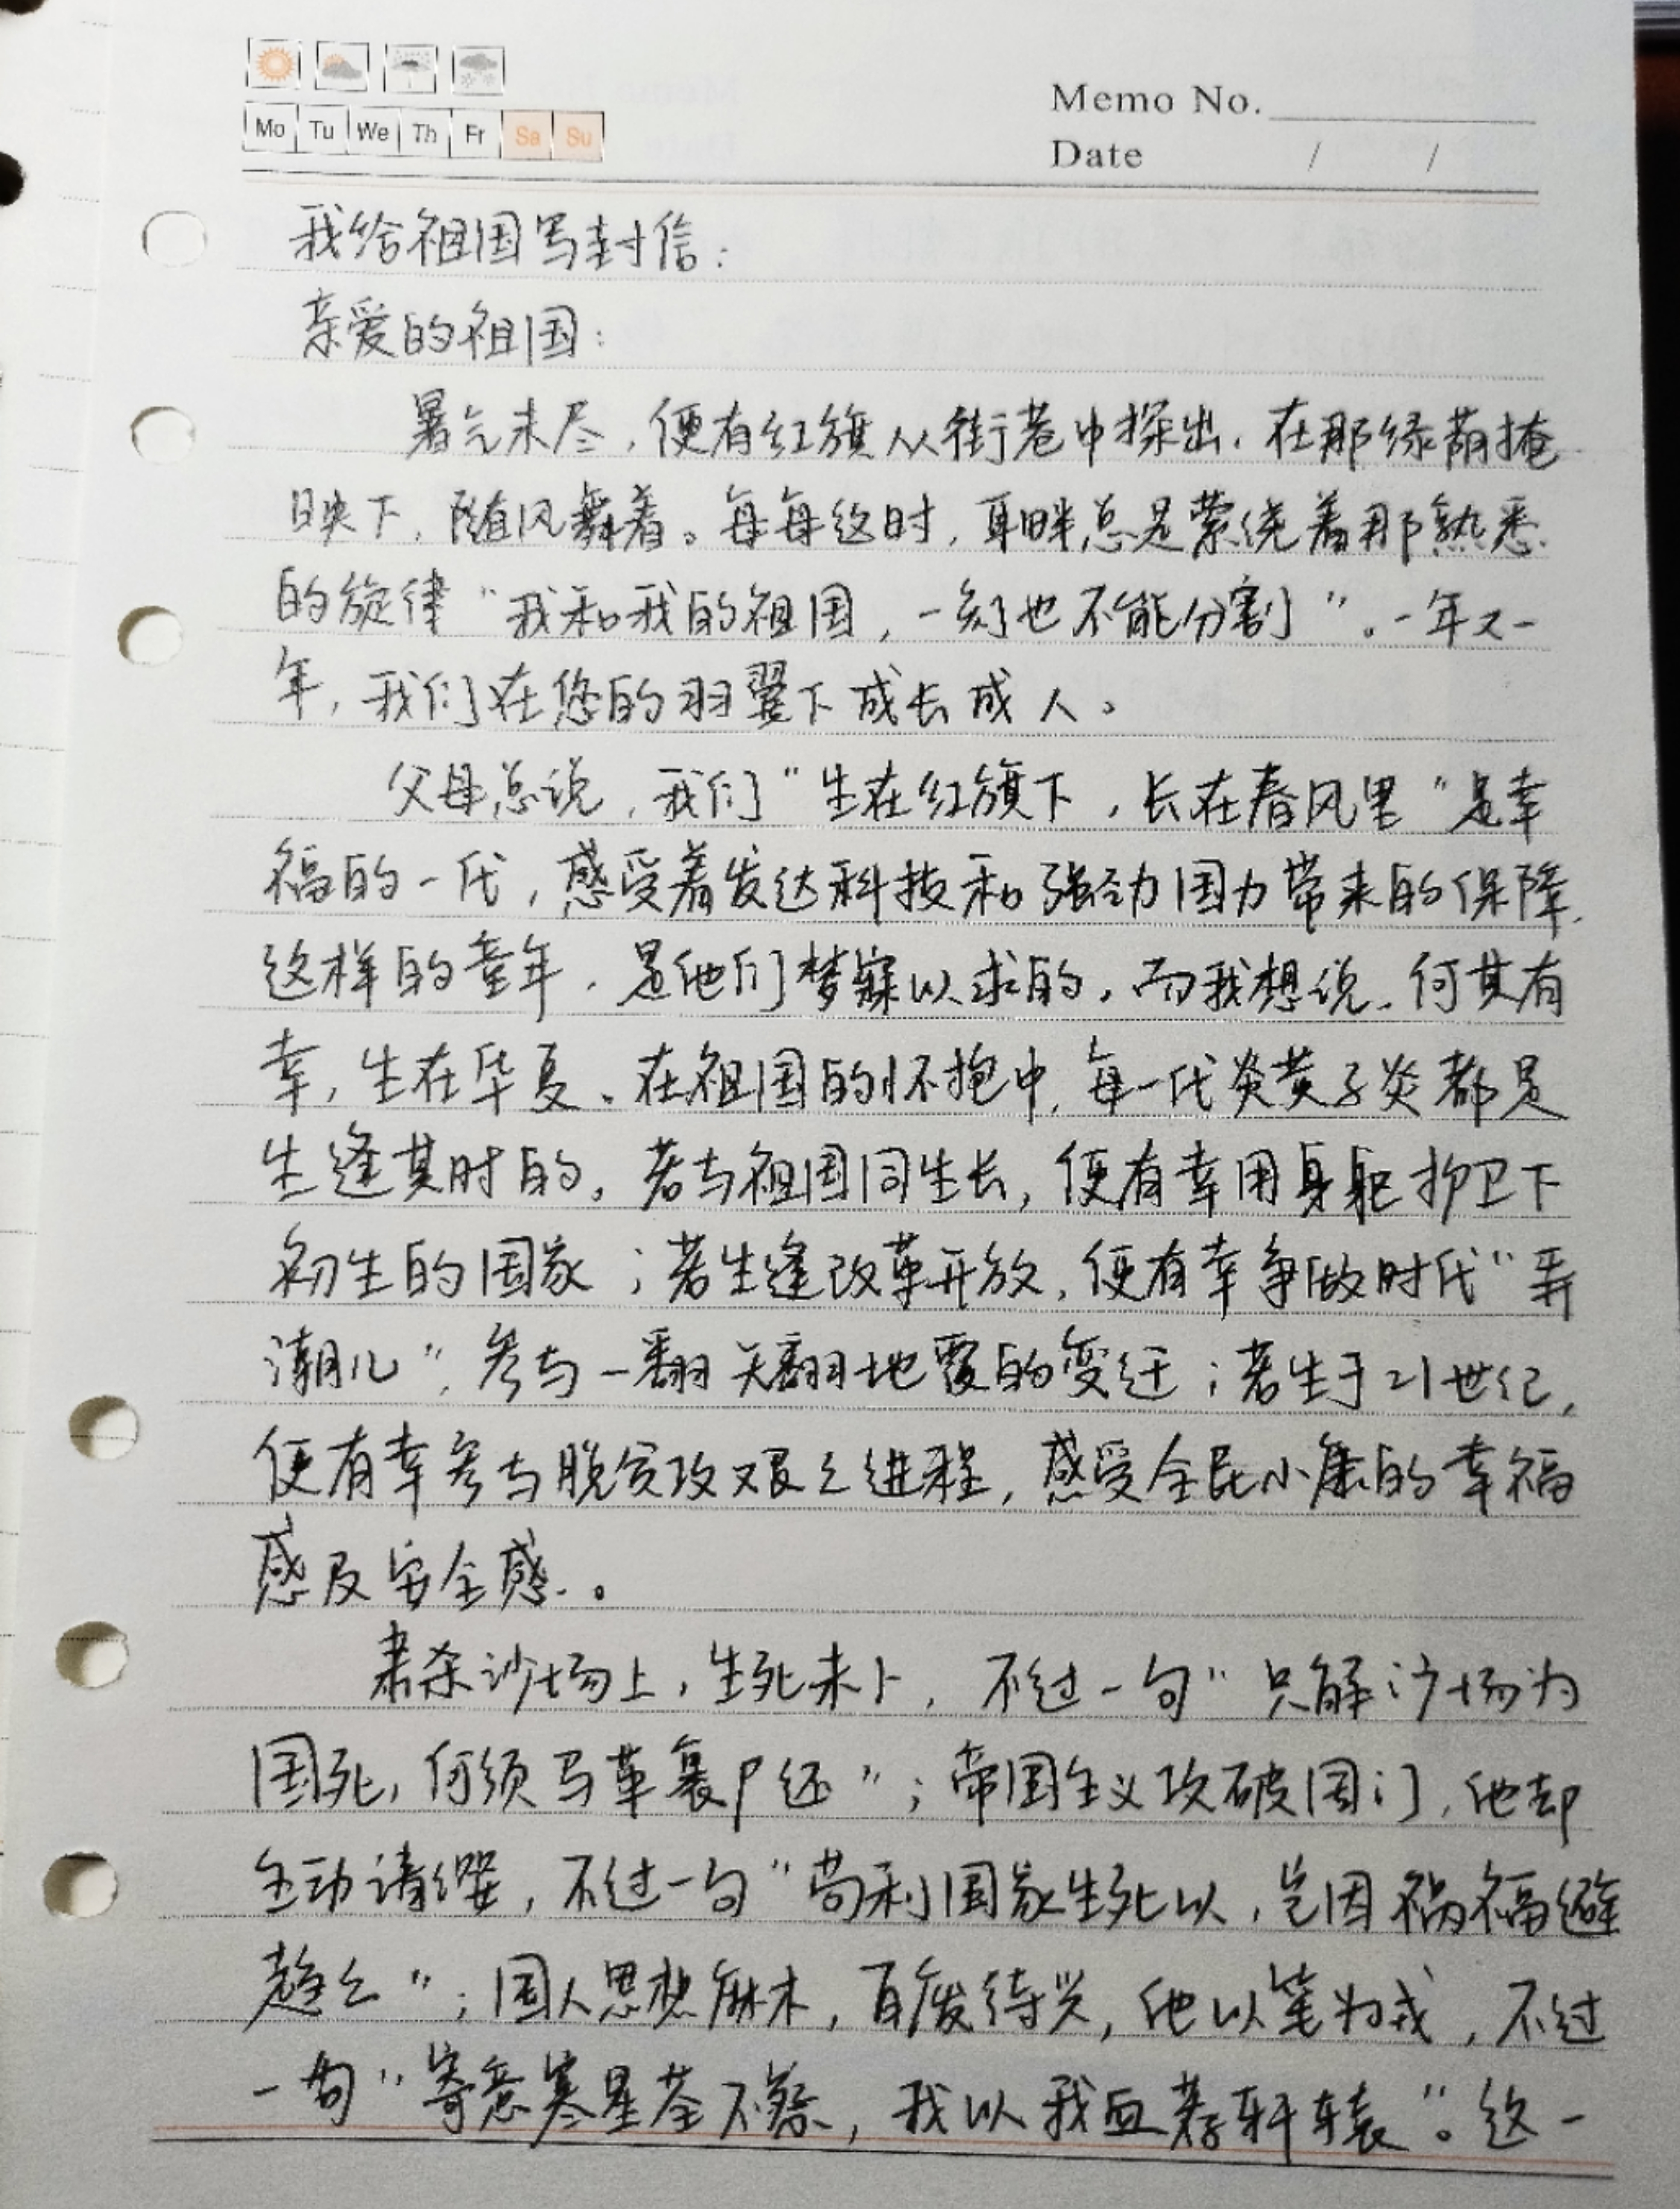 Mo Tu We Th Fr Sa Su
Memo No.
Date / /
我给祖国写封信：
亲爱的祖国：
暑气未尽，便有红旗从街巷中探出，在那绿荫掩
映下，随风舞着。每每这时，耳畔总是萦绕着那熟悉
的旋律“我和我的祖国，一刻也不能分割”。一年又一
年，我们在您的羽翼下成长成人。
父母总说，我们“生在红旗下，长在春风里”是幸
福的一代，感受着发达科技和强劲国力带来的保障，
这样的童年，是他们梦寐以求的，而我想说，何其有
幸，生在华夏。在祖国的怀抱中，每一代炎黄子炎都是
生逢其时的。若与祖国同生长，便有幸用身躯护卫下
初生的国家；若生逢改革开放，便有幸争做时代“弄
潮儿”，参与一翻天翻地覆的变迁；若生于21世纪，
便有幸参与脱贫攻艰之进程，感受全民小康的幸福
感及安全感。
肃杀沙场上，生死未卜，不过一句“只解沙场为
国死，何须马革裹尸还”；帝国主义攻破国门，他却
主动请缨，不过一句“苟利国家生死以，岂因祸福避
趋之”；国人思想麻木，百废待兴，他以笔为戎，不过
一句“寄意寒星荃不察，我以我血荐轩辕”。这一